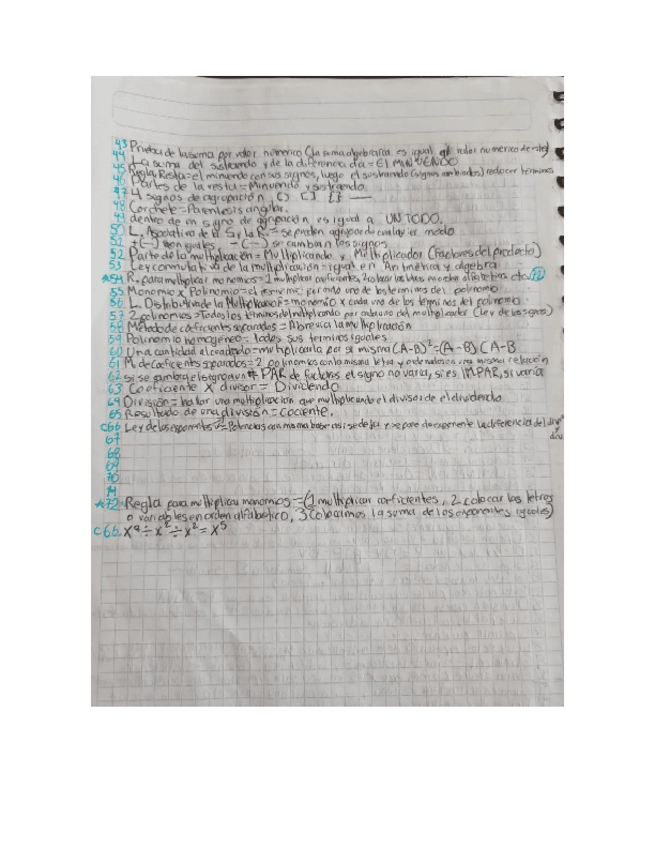 43 Prueba de la suma por valor numerico (la suma algebraica es igual al valor numerico de
44 La suma del sustraendo y de la diferencia da = El MINUENDO
45 Regla Resta = el minuendo con sus signos, luego el sustraendo (signos cambiados) reducer terminos
46 Partes de la resta = Minuendo y sustraendo
47 4 signos de agrupación () [] {} —
48 Corchete = Parentesis angular.
49 dentro de un signo de agrupación es igual a UN TODO.
50 L. Asociativa de la S. y la R. = se pueden agrupar de cualquier modo
51 +(—) son iguales -(—) se cambian los signos
52 Parte de la multiplicación = Multiplicando y Multiplicador (Factores del producto)
53 Ley conmutativa de la multiplicación = igual en Aritmética y algebra
*54 R. para multiplicar monomios = 1 multiplicar coeficientes, 2 colocar las letras etc. 72
55 Monomio x Polinomio = el por cada uno de los terminos del polinomio
56 L. Distributiva de la Multiplicación = monomio x cada uno de los terminos del polinomio
57 2 polinomios = Todos los terminos del multiplicando por cada uno del multiplicador (Ley de los signos)
58 Método de coeficientes separados = Abrevia la multiplicación
59 Polinomio homogeneo = todos sus terminos iguales
60 Una cantidad al cuadrado = multiplicarla por si misma (A-B)²=(A-B)(A-B
61 M. de Coeficientes separados = 2 polinomios con la misma letra y ordenados misma relación
62 si se cambia el signo a un # PAR de factores el signo no varia, si es IMPAR, si varía
63 Coeficiente X divisor = Dividendo
64 División = hallar una multiplicación que multiplicando el divisor de el dividendo
65 Resultado de una división = cociente.
C66 Ley de los exponentes = Potencias con misma base y se pone de exponente la diferencia del
67
68
69
70
71
*72. Regla para multiplicar monomios = (1 multiplicar coeficientes, 2 colocar las letras
o variables en orden alfabético, 3 Colocamos la suma de los exponentes iguales)
C66. X⁹÷X²÷X²=X⁵